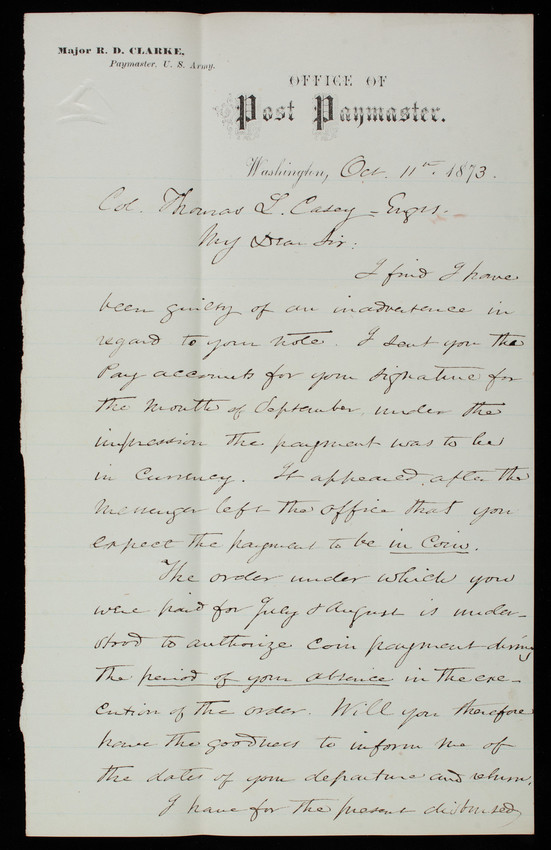 Major R. D. CLARKE,
Paymaster, U. S. Army.
OFFICE OF
Post Paymaster.
Washington, Oct. 11th, 1873.
Col. Thomas L. Casey - Engrs.
My Dear Sir:
I find I have
been guilty of an inadvertence in
regard to your note. I sent you the
Pay accounts for your signature for
the month of September, under the
impression the payment was to be
in Currency. It appeared, after the
Messenger left the office that you
expect the payment to be in Coin.
The order under which you
were paid for July & August is under-
stood to authorize coin payment during
the period of your absence in the exe-
cution of the order. Will you therefore
have the goodness to inform me of
the dates of your departure and return.
I have for the present disbursed